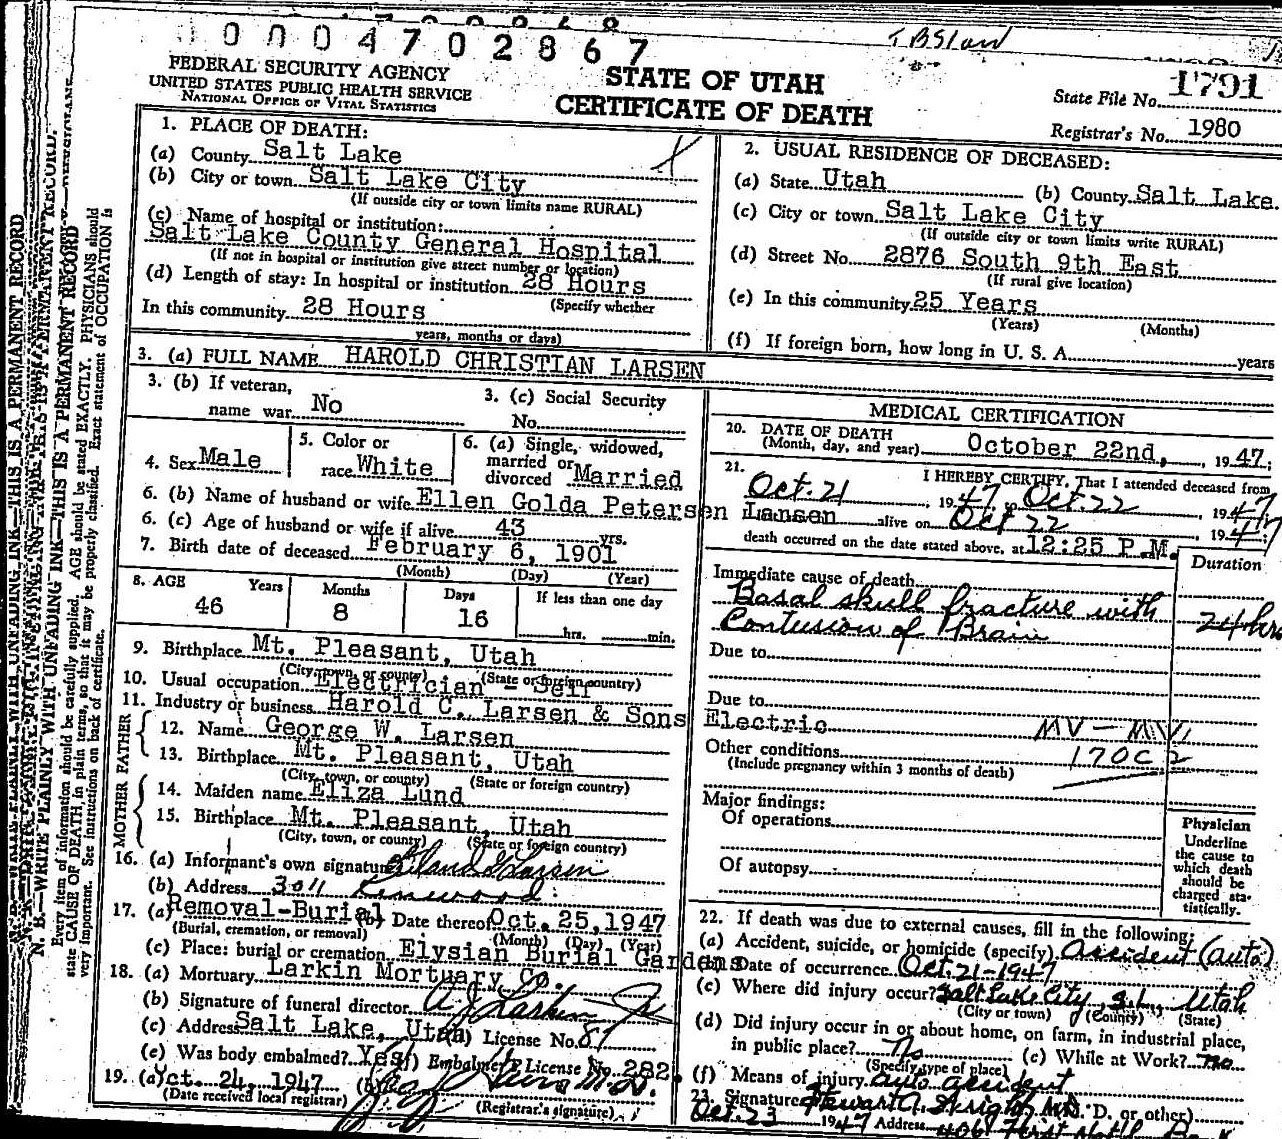 0004702867
FEDERAL SECURITY AGENCY
UNITED STATES PUBLIC HEALTH SERVICE
NATIONAL OFFICE OF VITAL STATISTICS
STATE OF UTAH
CERTIFICATE OF DEATH
State File No. 1791
Registrar's No. 1980
1. PLACE OF DEATH:
(a) County Salt Lake
(b) City or town Salt Lake City
(If outside city or town limits name RURAL)
(c) Name of hospital or institution:
Salt Lake County General Hospital
(If not in hospital or institution give street number or location)
(d) Length of stay: In hospital or institution 28 Hours
(Specify whether
In this community 28 Hours
years, months or days)
2. USUAL RESIDENCE OF DECEASED:
(a) State Utah (b) County Salt Lake.
(c) City or town Salt Lake City
(If outside city or town limits write RURAL)
(d) Street No. 2876 South 9th East
(If rural give location)
(e) In this community 25 Years
(Years) (Months)
(f) If foreign born, how long in U. S. A. years
3. (a) FULL NAME HAROLD CHRISTIAN LARSEN
3. (b) If veteran,
name war No
3. (c) Social Security
No.
4. Sex Male
5. Color or
race White
6. (a) Single, widowed,
married or
divorced Married
6. (b) Name of husband or wife Ellen Golda Petersen Larsen
6. (c) Age of husband or wife if alive 43 yrs.
7. Birth date of deceased February 6, 1901
(Month) (Day) (Year)
8. AGE Years Months Days If less than one day
46 8 16 hrs. min.
9. Birthplace Mt. Pleasant, Utah
(City, town, or county) (State or foreign country)
10. Usual occupation Electrician - Self
11. Industry or business Harold C. Larsen & Sons Electric
FATHER
12. Name George W. Larsen
13. Birthplace Mt. Pleasant, Utah
(City, town, or county) (State or foreign country)
MOTHER
14. Maiden name Eliza Lund
15. Birthplace Mt. Pleasant, Utah
(City, town, or county) (State or foreign country)
16. (a) Informant's own signature Larsen
(b) Address 3011 Kenwood.
17. (a) Removal-Burial (b) Date thereof Oct. 25, 1947
(Burial, cremation, or removal) (Month) (Day) (Year)
(c) Place: burial or cremation Elysian Burial Gardens
18. (a) Mortuary Larkin Mortuary Co.
(b) Signature of funeral director A J Larkin Jr
(c) Address Salt Lake, Utah (d) License No. 87
(e) Was body embalmed? Yes (f) Embalmer's License No. 282.
19. (a) Oct. 24, 1947 (b)
(Date received local registrar) (Registrar's signature)
MEDICAL CERTIFICATION
20. DATE OF DEATH
(Month, day, and year) October 22nd, 1947;
21. I HEREBY CERTIFY, That I attended deceased from
Oct. 21, 1947, to Oct. 22, 1947
alive on Oct 22, 1947;
death occurred on the date stated above, at 12:25 P.M.
Duration
Immediate cause of death
Basal skull fracture with
Contusion of Brain
24 hrs
Due to
Due to
Other conditions 170C 2
(Include pregnancy within 3 months of death)
Major findings:
Of operations
Of autopsy
Physician
Underline
the cause to
which death
should be
charged sta-
tistically.
22. If death was due to external causes, fill in the following:
(a) Accident, suicide, or homicide (specify) Accident (auto)
(b) Date of occurrence Oct. 21-1947
(c) Where did injury occur? Salt Lake City, S.L., Utah
(City or town) (County) (State)
(d) Did injury occur in or about home, on farm, in industrial place,
in public place? No (e) While at Work? no
(Specify type of place)
(f) Means of injury auto accident
23. Signature Stewart A. Wright M.D. (M. D. or other)
Oct. 23 1947 Address
N. B.—WRITE PLAINLY WITH UNFADING INK—THIS IS A PERMANENT RECORD
Every item of information should be carefully supplied. AGE should be stated EXACTLY. PHYSICIANS should
state CAUSE OF DEATH in plain terms, so that it may be properly classified. Exact statement of OCCUPATION is
very important. See instructions on back of certificate.